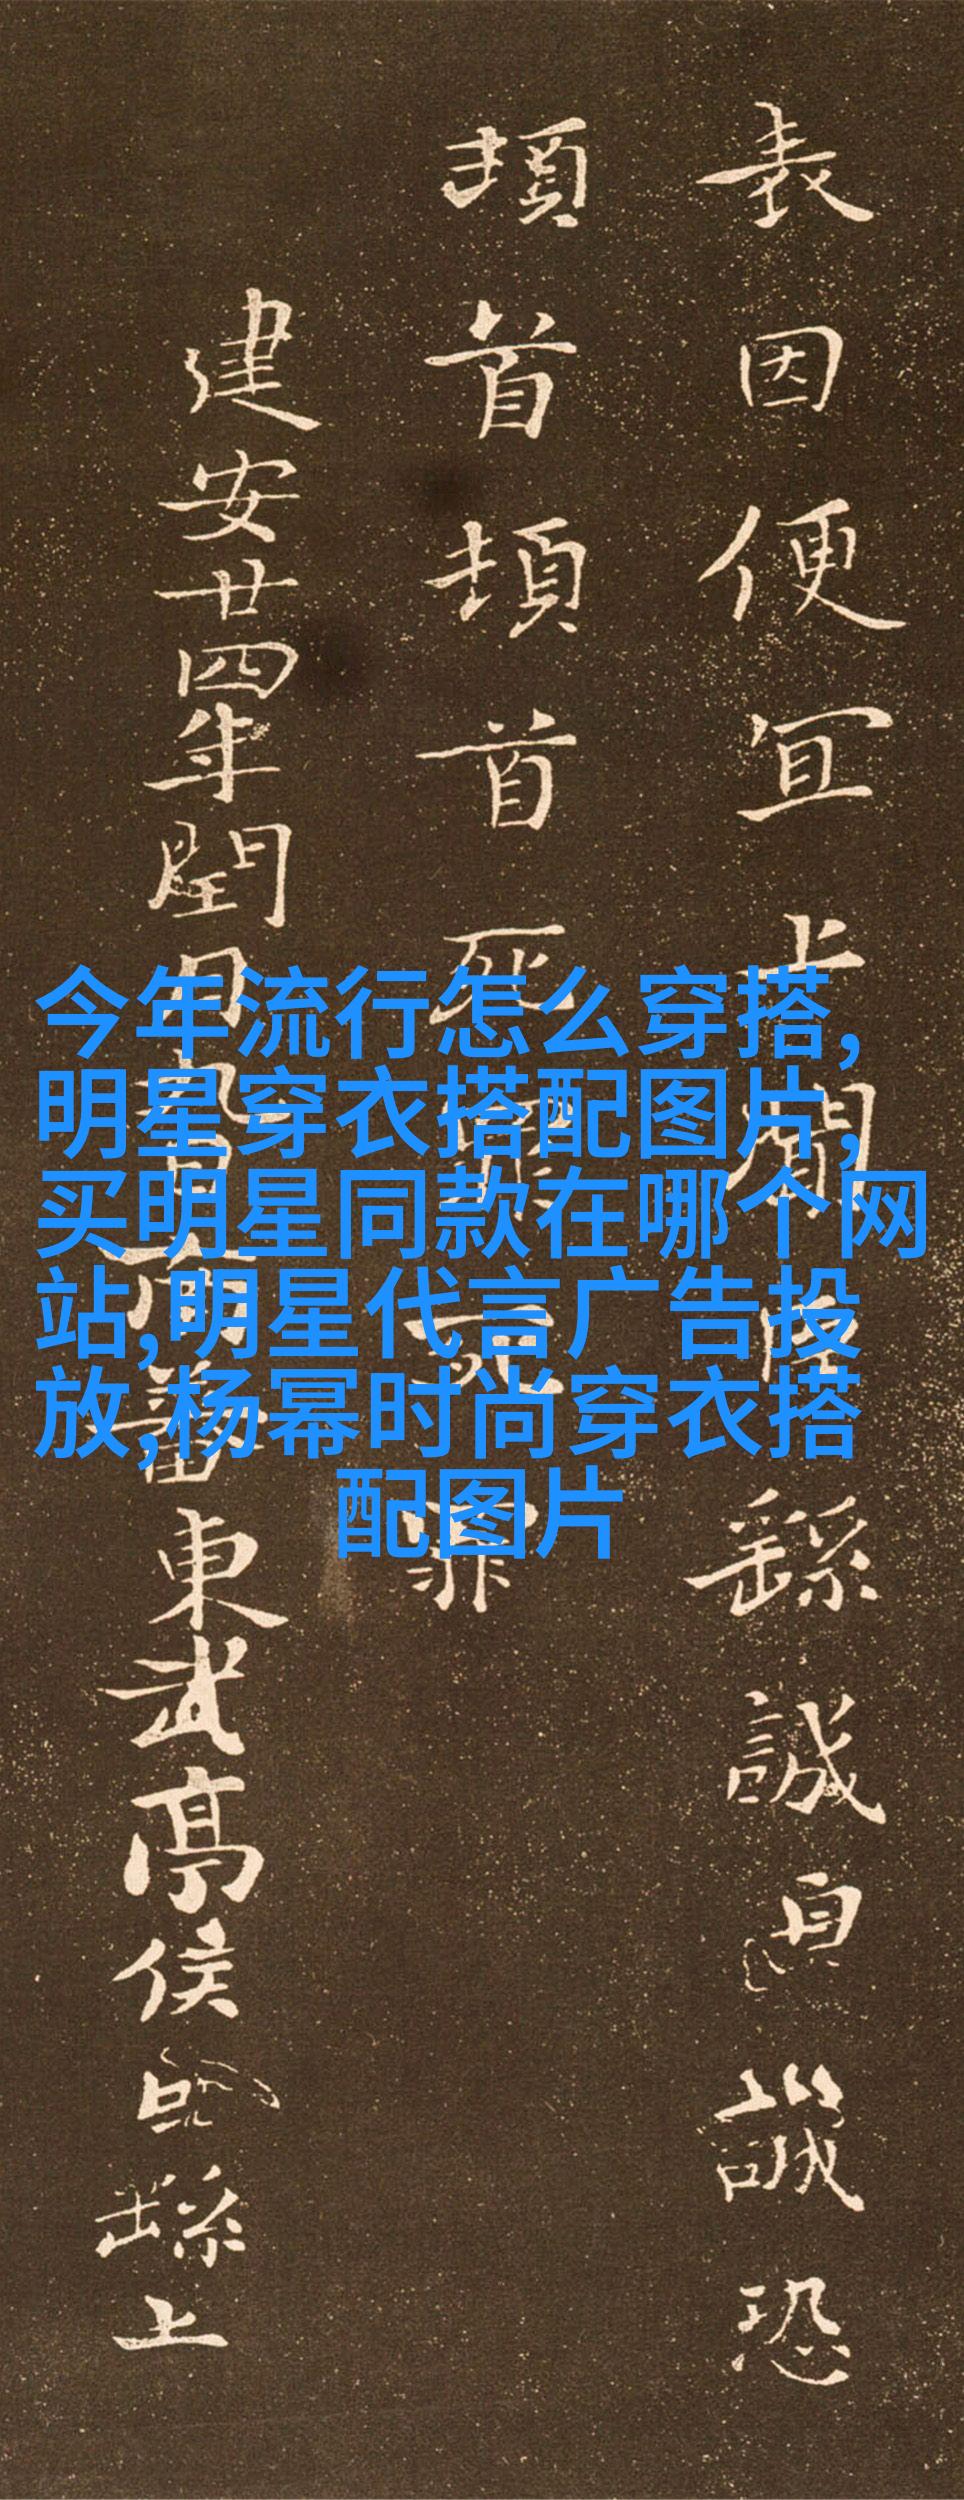 表因便宜上聞臣繇誠惶誠恐
頓首頓首死罪死罪
建安廿四年閏月九日南蕃東武亭侯臣繇上
今年流行怎么穿搭,
明星穿衣搭配图片,
买明星同款在哪个网
站,明星代言广告投
放,杨幂时尚穿衣搭
配图片